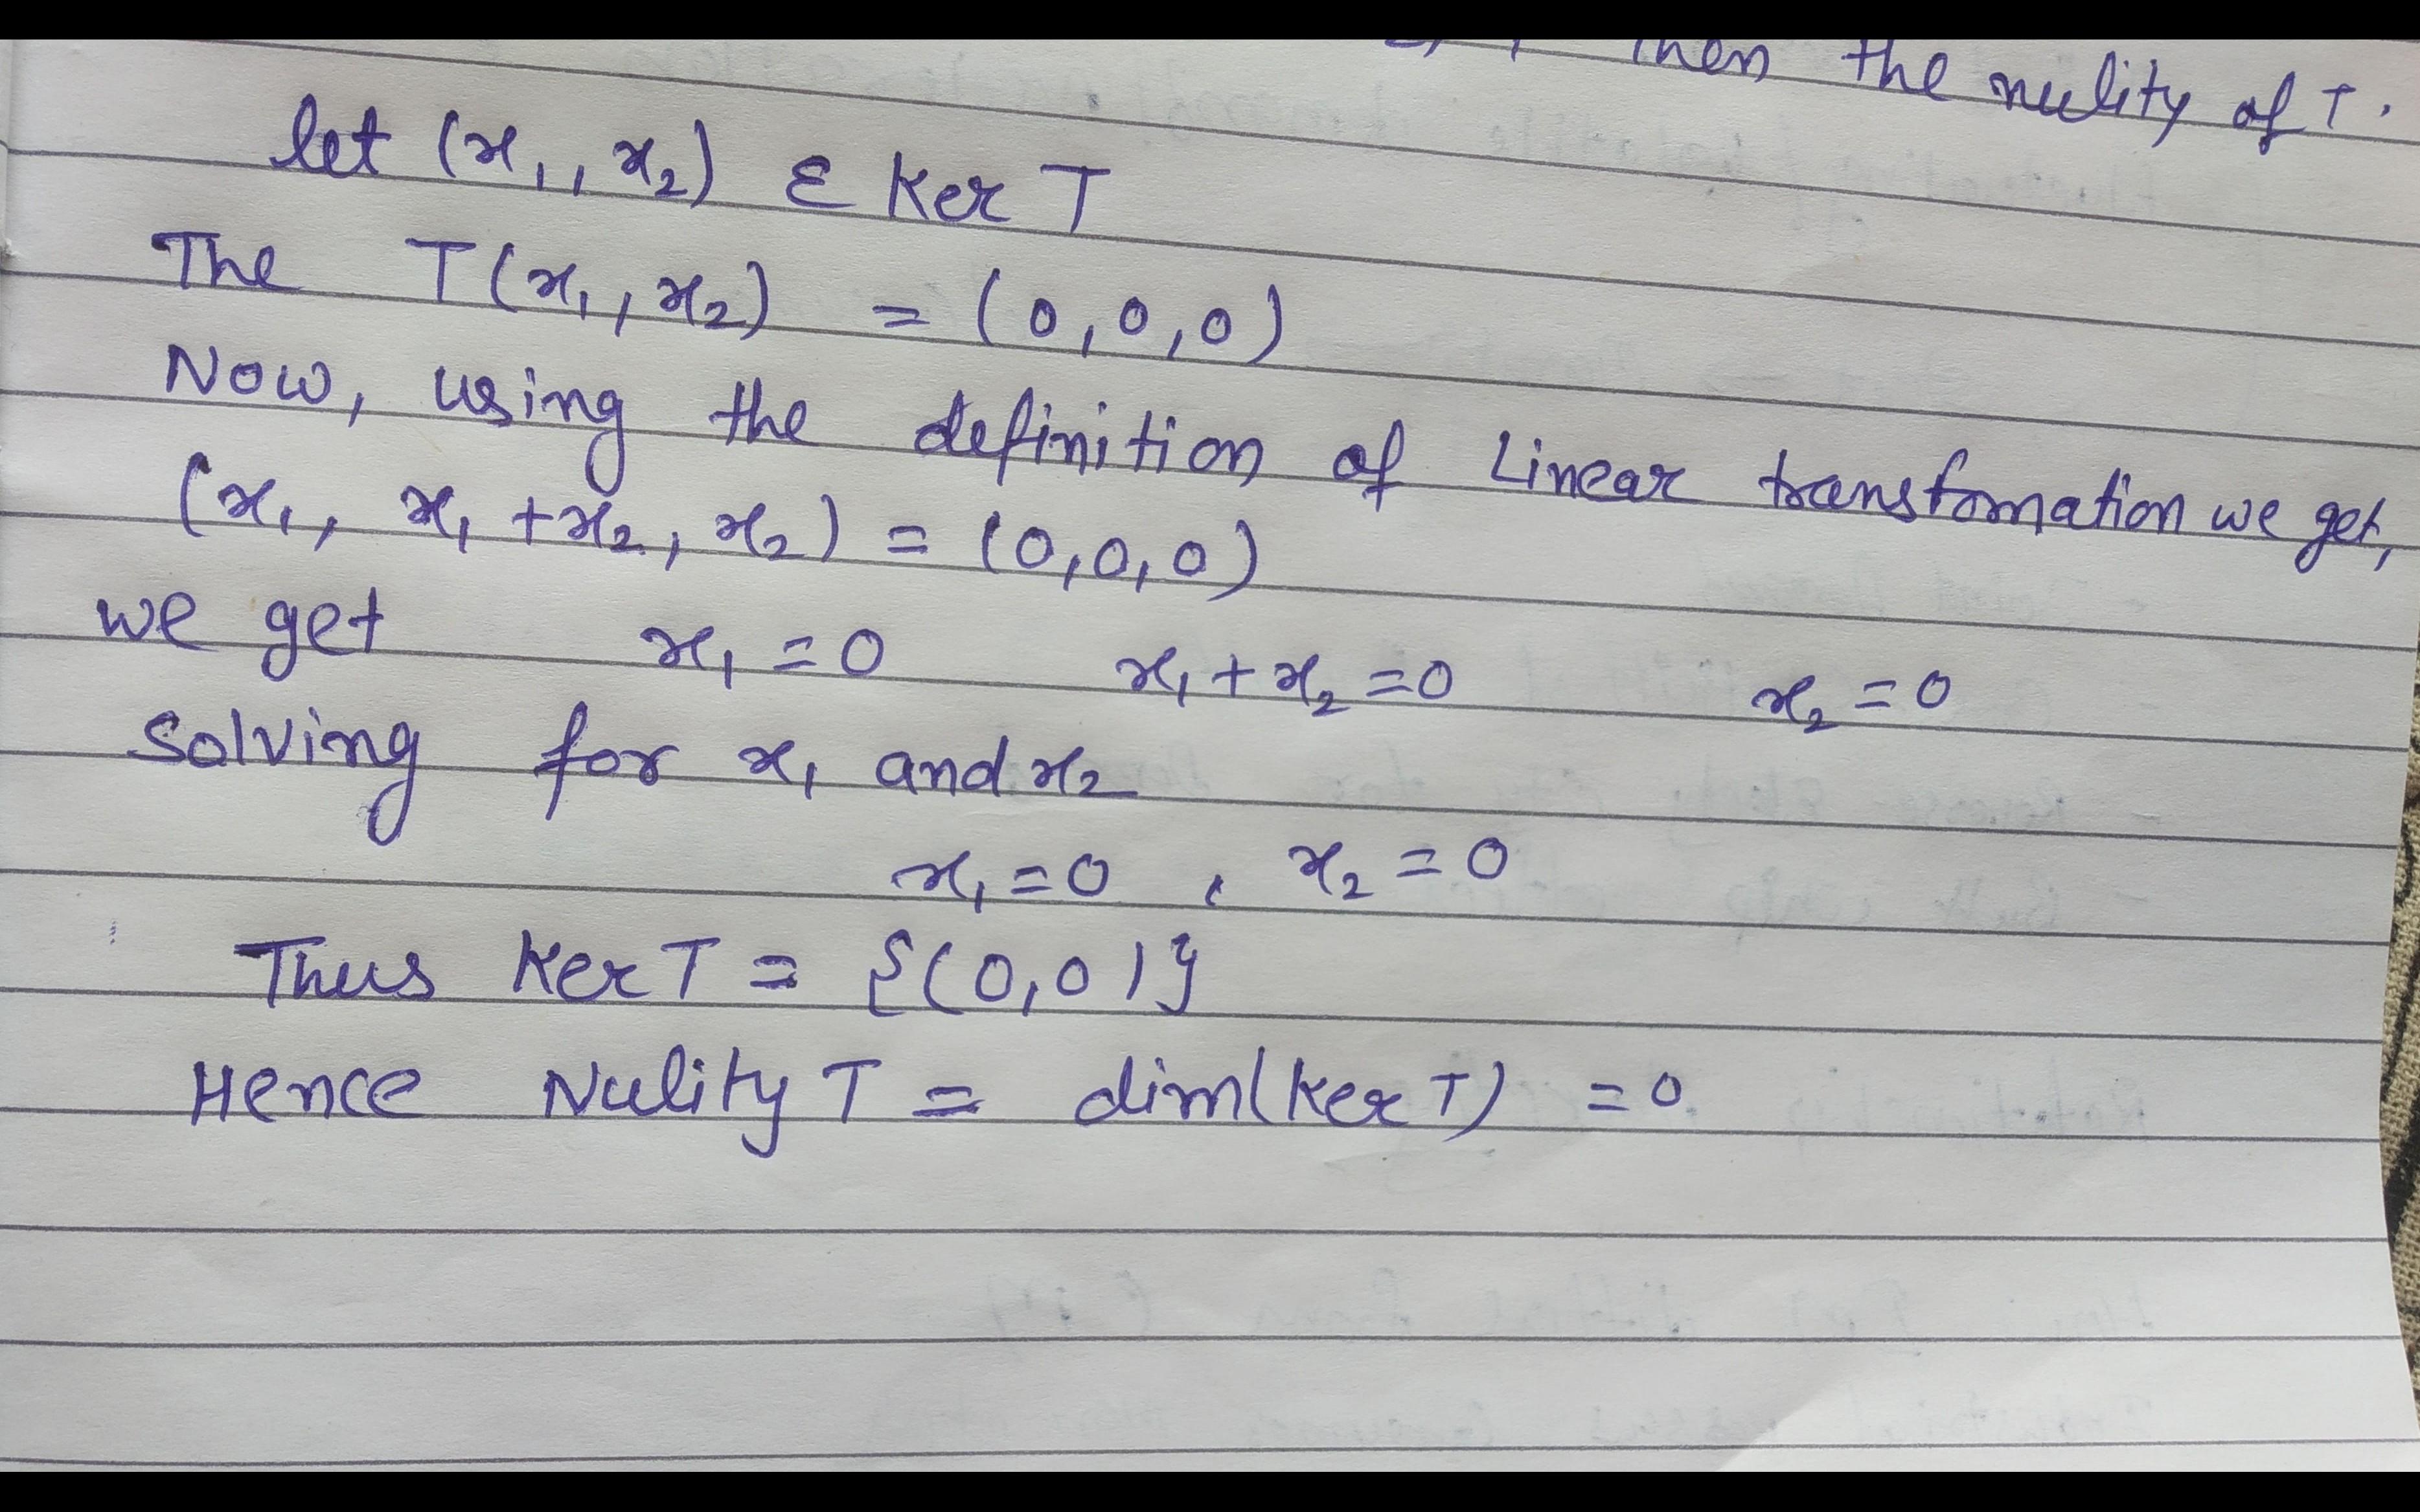 then the nulity of T.
let (x₁, x₂) ε Ker T
The T(x₁, x₂) = (0, 0, 0)
Now, using the definition of Linear transfomation we get,
(x₁, x₁ + x₂, x₂) = (0, 0, 0)
we get x₁ = 0 x₁ + x₂ = 0 x₂ = 0
Solving for x₁ and x₂
x₁ = 0 , x₂ = 0
Thus Ker T = {(0, 0)}
Hence Nulity T = dim(Ker T) = 0